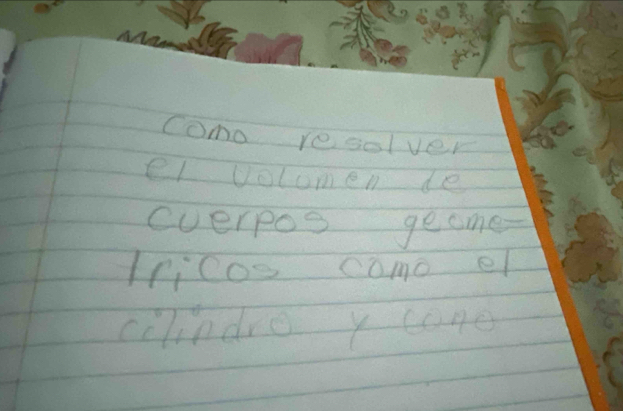 como resolver
el volumen de
cuerpos geome-
tricos como el
cilindro y cono